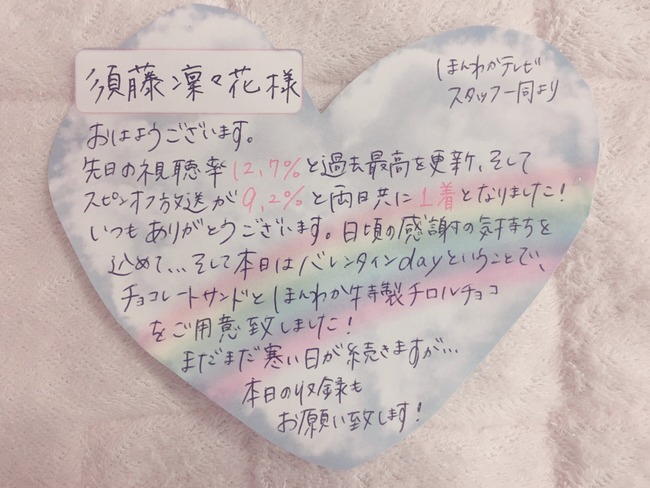 須藤凜々花様
ほんわかテレビ
スタッフ一同より
おはようございます。
先日の視聴率12,7%と過去最高を更新、そして
スピンオフ放送が9,2%と両日共に1着となりました!
いつもありがとうございます。日頃の感謝の気持ちを
込めて...そして本日はバレンタインdayということで、
チョコレートサンドとほんわか特製チロルチョコ
をご用意致しました!
まだまだ寒い日が続きますが...
本日の収録も
お願い致します!